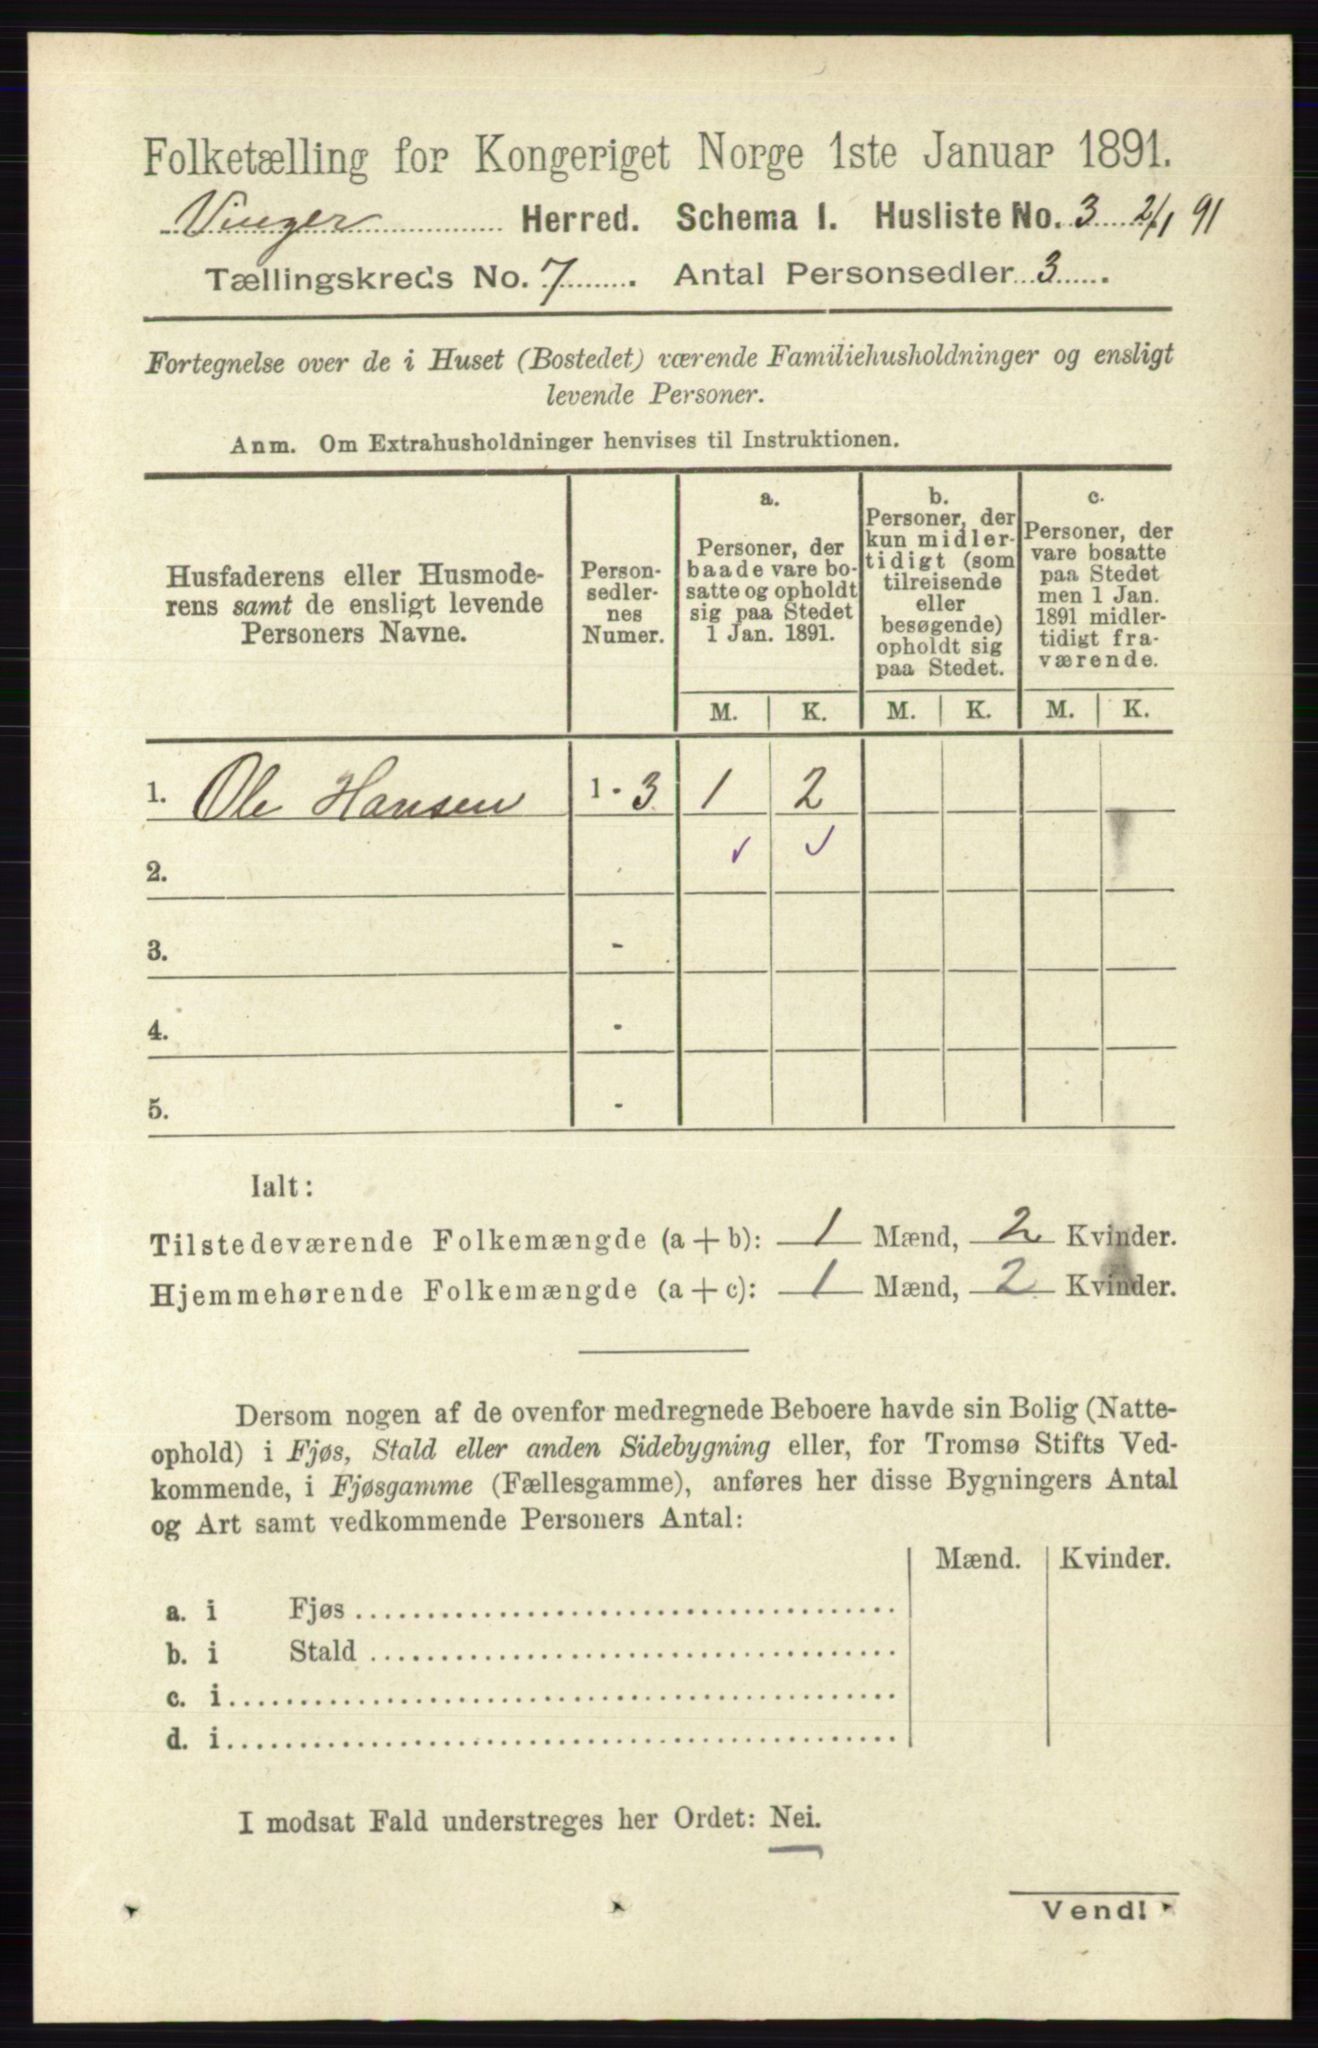 Folketælling for Kongeriget Norge 1ste Januar 1891.
Vinger Herred. Schema 1. Husliste No. 3 2/1 91
Tællingskreds No. 7. Antal Personsedler 3.
Fortegnelse over de i Huset (Bostedet) værende Familiehusholdninger og ensligt
levende Personer.
Anm. Om Extrahusholdninger henvises til Instruktionen.
Husfaderens eller Husmode-
rens samt de ensligt levende
Personers Navne.
Person-
sedler-
nes
Numer.
a.
Personer, der
baade vare bo-
satte og opholdt
sig paa Stedet
1 Jan. 1891.
b.
Personer, der
kun midler-
tidigt (som
tilreisende
eller
besøgende)
opholdt sig
paa Stedet.
c.
Personer, der
vare bosatte
paa Stedet
men 1 Jan.
1891 midler-
tidigt fra-
værende.
M. K. M. K. M. K.
1. Ole Hansen 1 - 3 1 2
2. ✓ ✓
3. -
4. -
5. -
Ialt:
Tilstedeværende Folkemængde (a + b): 1 Mænd, 2 Kvinder.
Hjemmehørende Folkemængde (a + c): 1 Mænd, 2 Kvinder.
Dersom nogen af de ovenfor medregnede Beboere havde sin Bolig (Natte-
ophold) i Fjøs, Stald eller anden Sidebygning eller, for Tromsø Stifts Ved-
kommende, i Fjøsgamme (Fællesgamme), anføres her disse Bygningers Antal
og Art samt vedkommende Personers Antal:
Mænd. Kvinder.
a. i Fjøs
b. i Stald
c. i
d. i
I modsat Fald understreges her Ordet: Nei.
Vend!